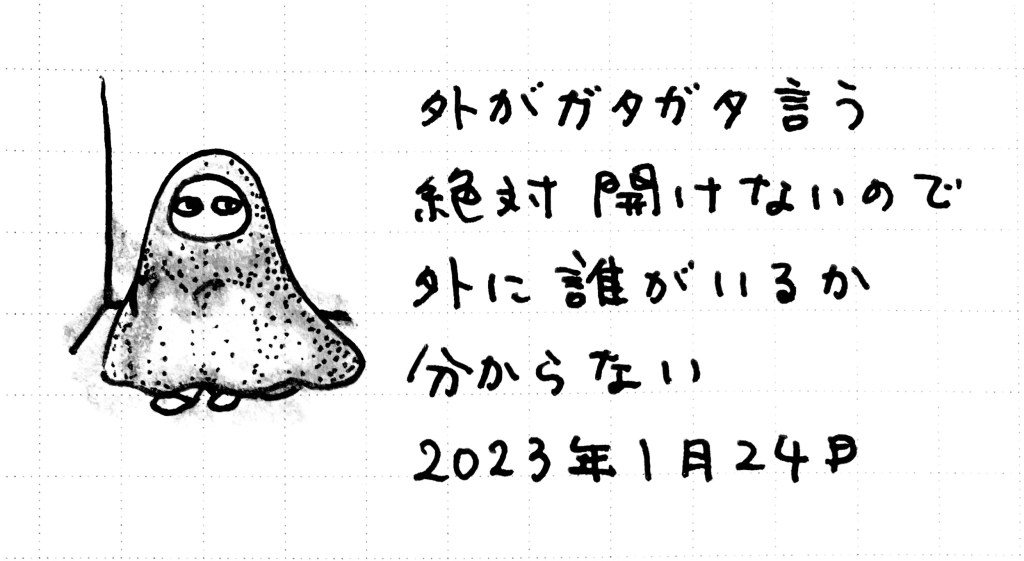 外がガタガタ言う
絶対開けないので
外に誰がいるか
分からない
2023年1月24日